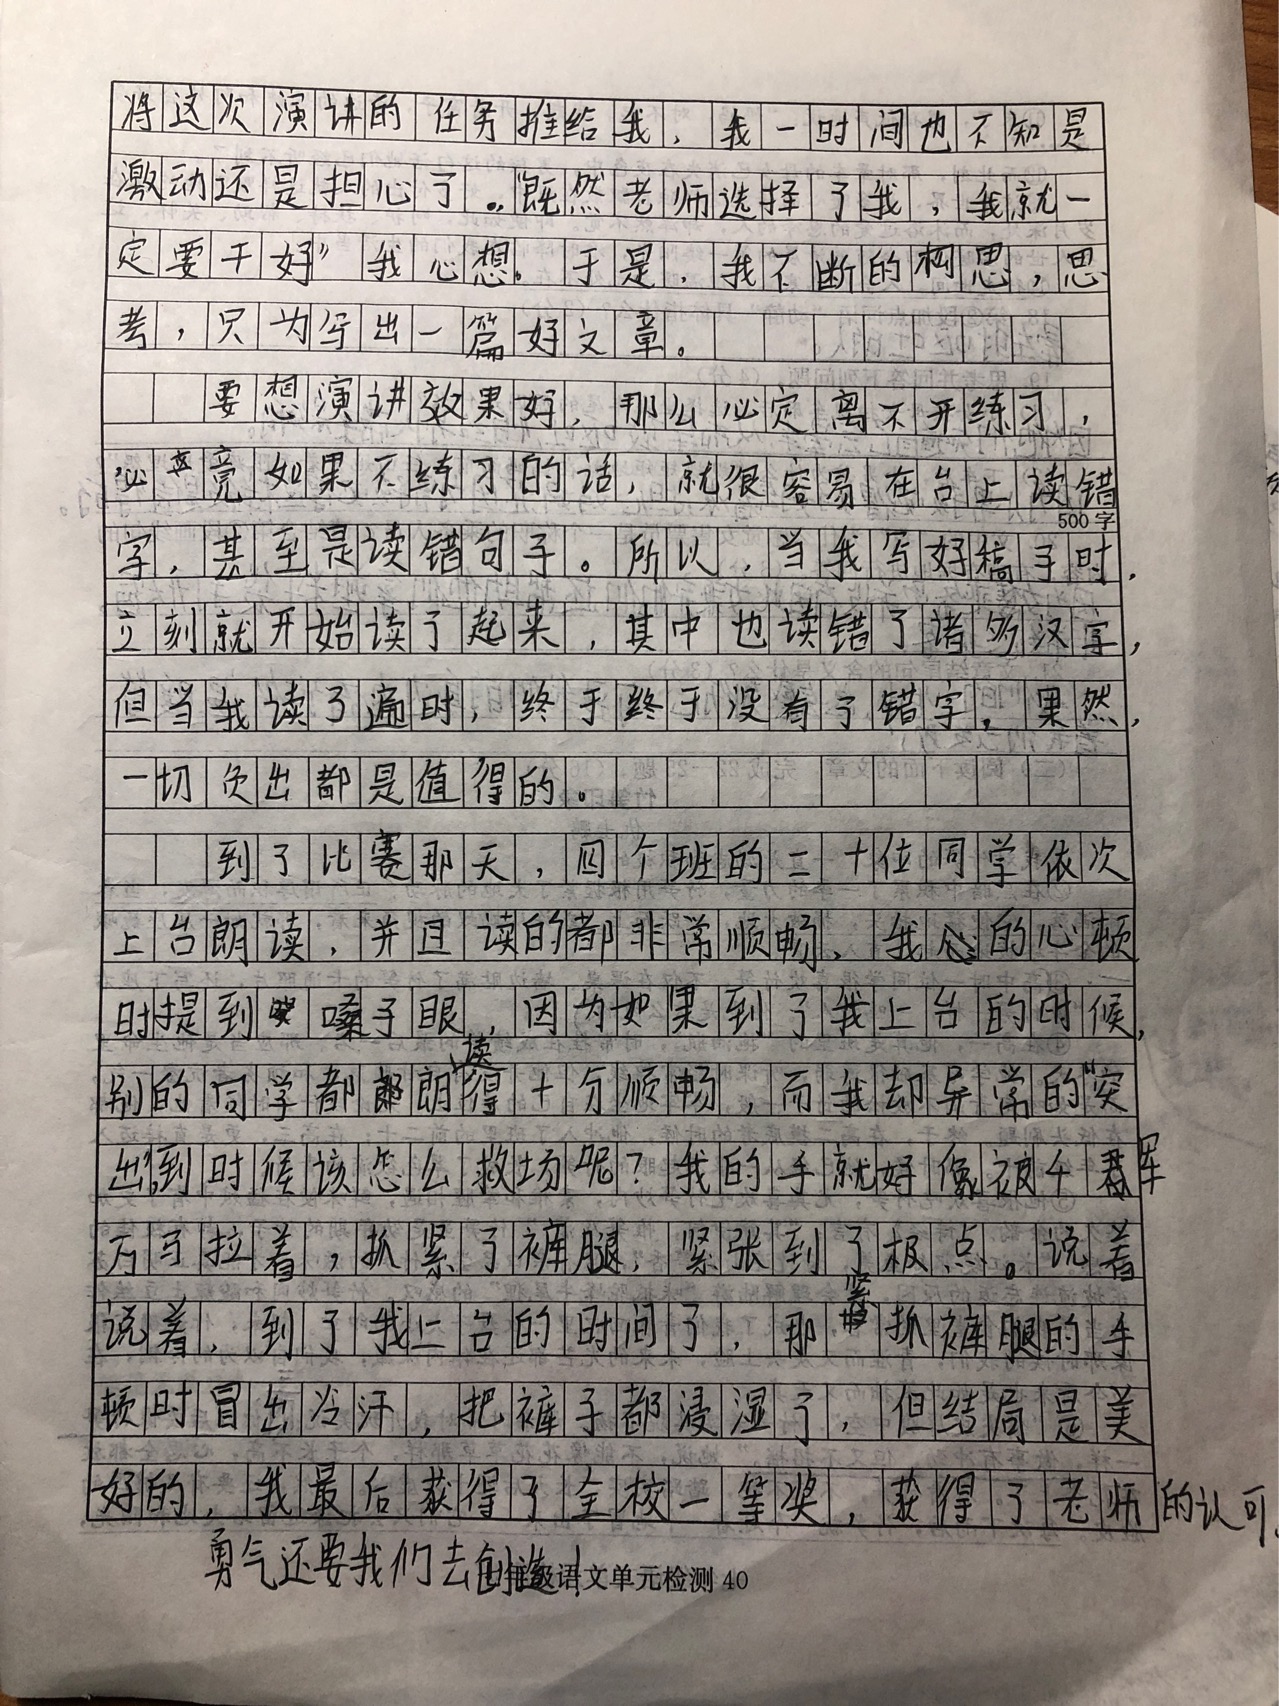 将这次演讲的任务推给我，我一时间也不知是
激动还是担心了。“既然老师选择了我，我就一
定要干好”我心想。于是，我不断的构思，思
考，只为写出一篇好文章。
要想演讲效果好，那么必定离不开练习，
毕竟如果不练习的话，就很容易在台上读错
500字
字，甚至是读错句子。所以，当我写好稿子时，
立刻就开始读了起来，其中也读错了诸多汉字，
但当我读了遍时，终于终于没有了错字。果然，
一切负出都是值得的。
到了比赛那天，四个班的二十位同学依次
上台朗读，并且读的都非常顺畅，我的心顿
时提到嗓子眼，因为如果到了我上台的时候，
别的同学都朗读得十分顺畅，而我却异常的“突
出”到时候该怎么救场呢？我的手就好像被千军
万马拉着，抓紧了裤腿，紧张到了极点。说着
说着，到了我上台的时间了，那紧抓裤腿的手
顿时冒出冷汗，把裤子都浸湿了，但结局是美
好的，我最后获得了全校一等奖，获得了老师的认可。
勇气还要我们去创造！
年级语文单元检测 40